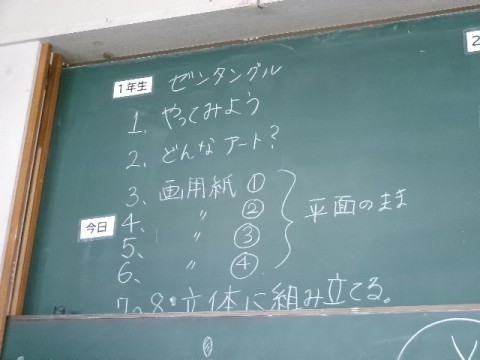 1年生 ゼンタングル
1、やってみよう
2、どんなアート?
3、画用紙①
今日 4、 〃 ② 平面のまま
5、 〃 ③
6、 〃 ④
7。8・立体に組み立てる。
2